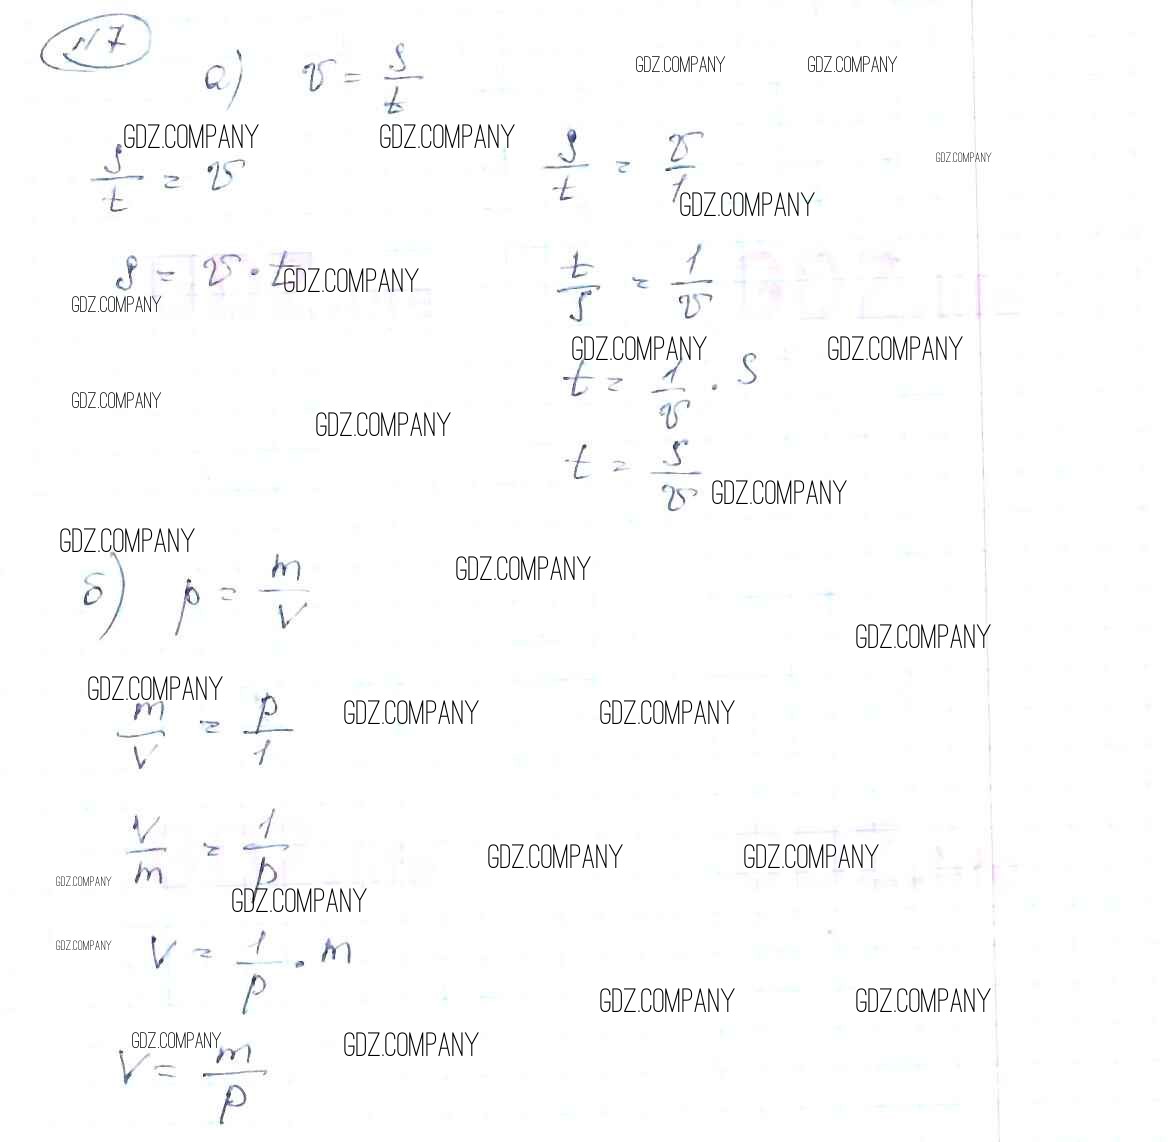 №7
а) v = s/t
GDZ.COMPANY GDZ.COMPANY
GDZ.COMPANY GDZ.COMPANY
s/t = v s/t = v/1
GDZ.COMPANY
GDZ.COMPANY
s = v · t t/s = 1/v
GDZ.COMPANY
GDZ.COMPANY
GDZ.COMPANY GDZ.COMPANY
t = 1/v · s
GDZ.COMPANY
GDZ.COMPANY
t = s/v
GDZ.COMPANY
GDZ.COMPANY
GDZ.COMPANY
б) p = m/V
GDZ.COMPANY
GDZ.COMPANY
GDZ.COMPANY GDZ.COMPANY
m/V = p/1
V/m = 1/p
GDZ.COMPANY GDZ.COMPANY
GDZ.COMPANY
GDZ.COMPANY
GDZ.COMPANY
V = 1/p · m
GDZ.COMPANY GDZ.COMPANY
GDZ.COMPANY GDZ.COMPANY
V = m/p